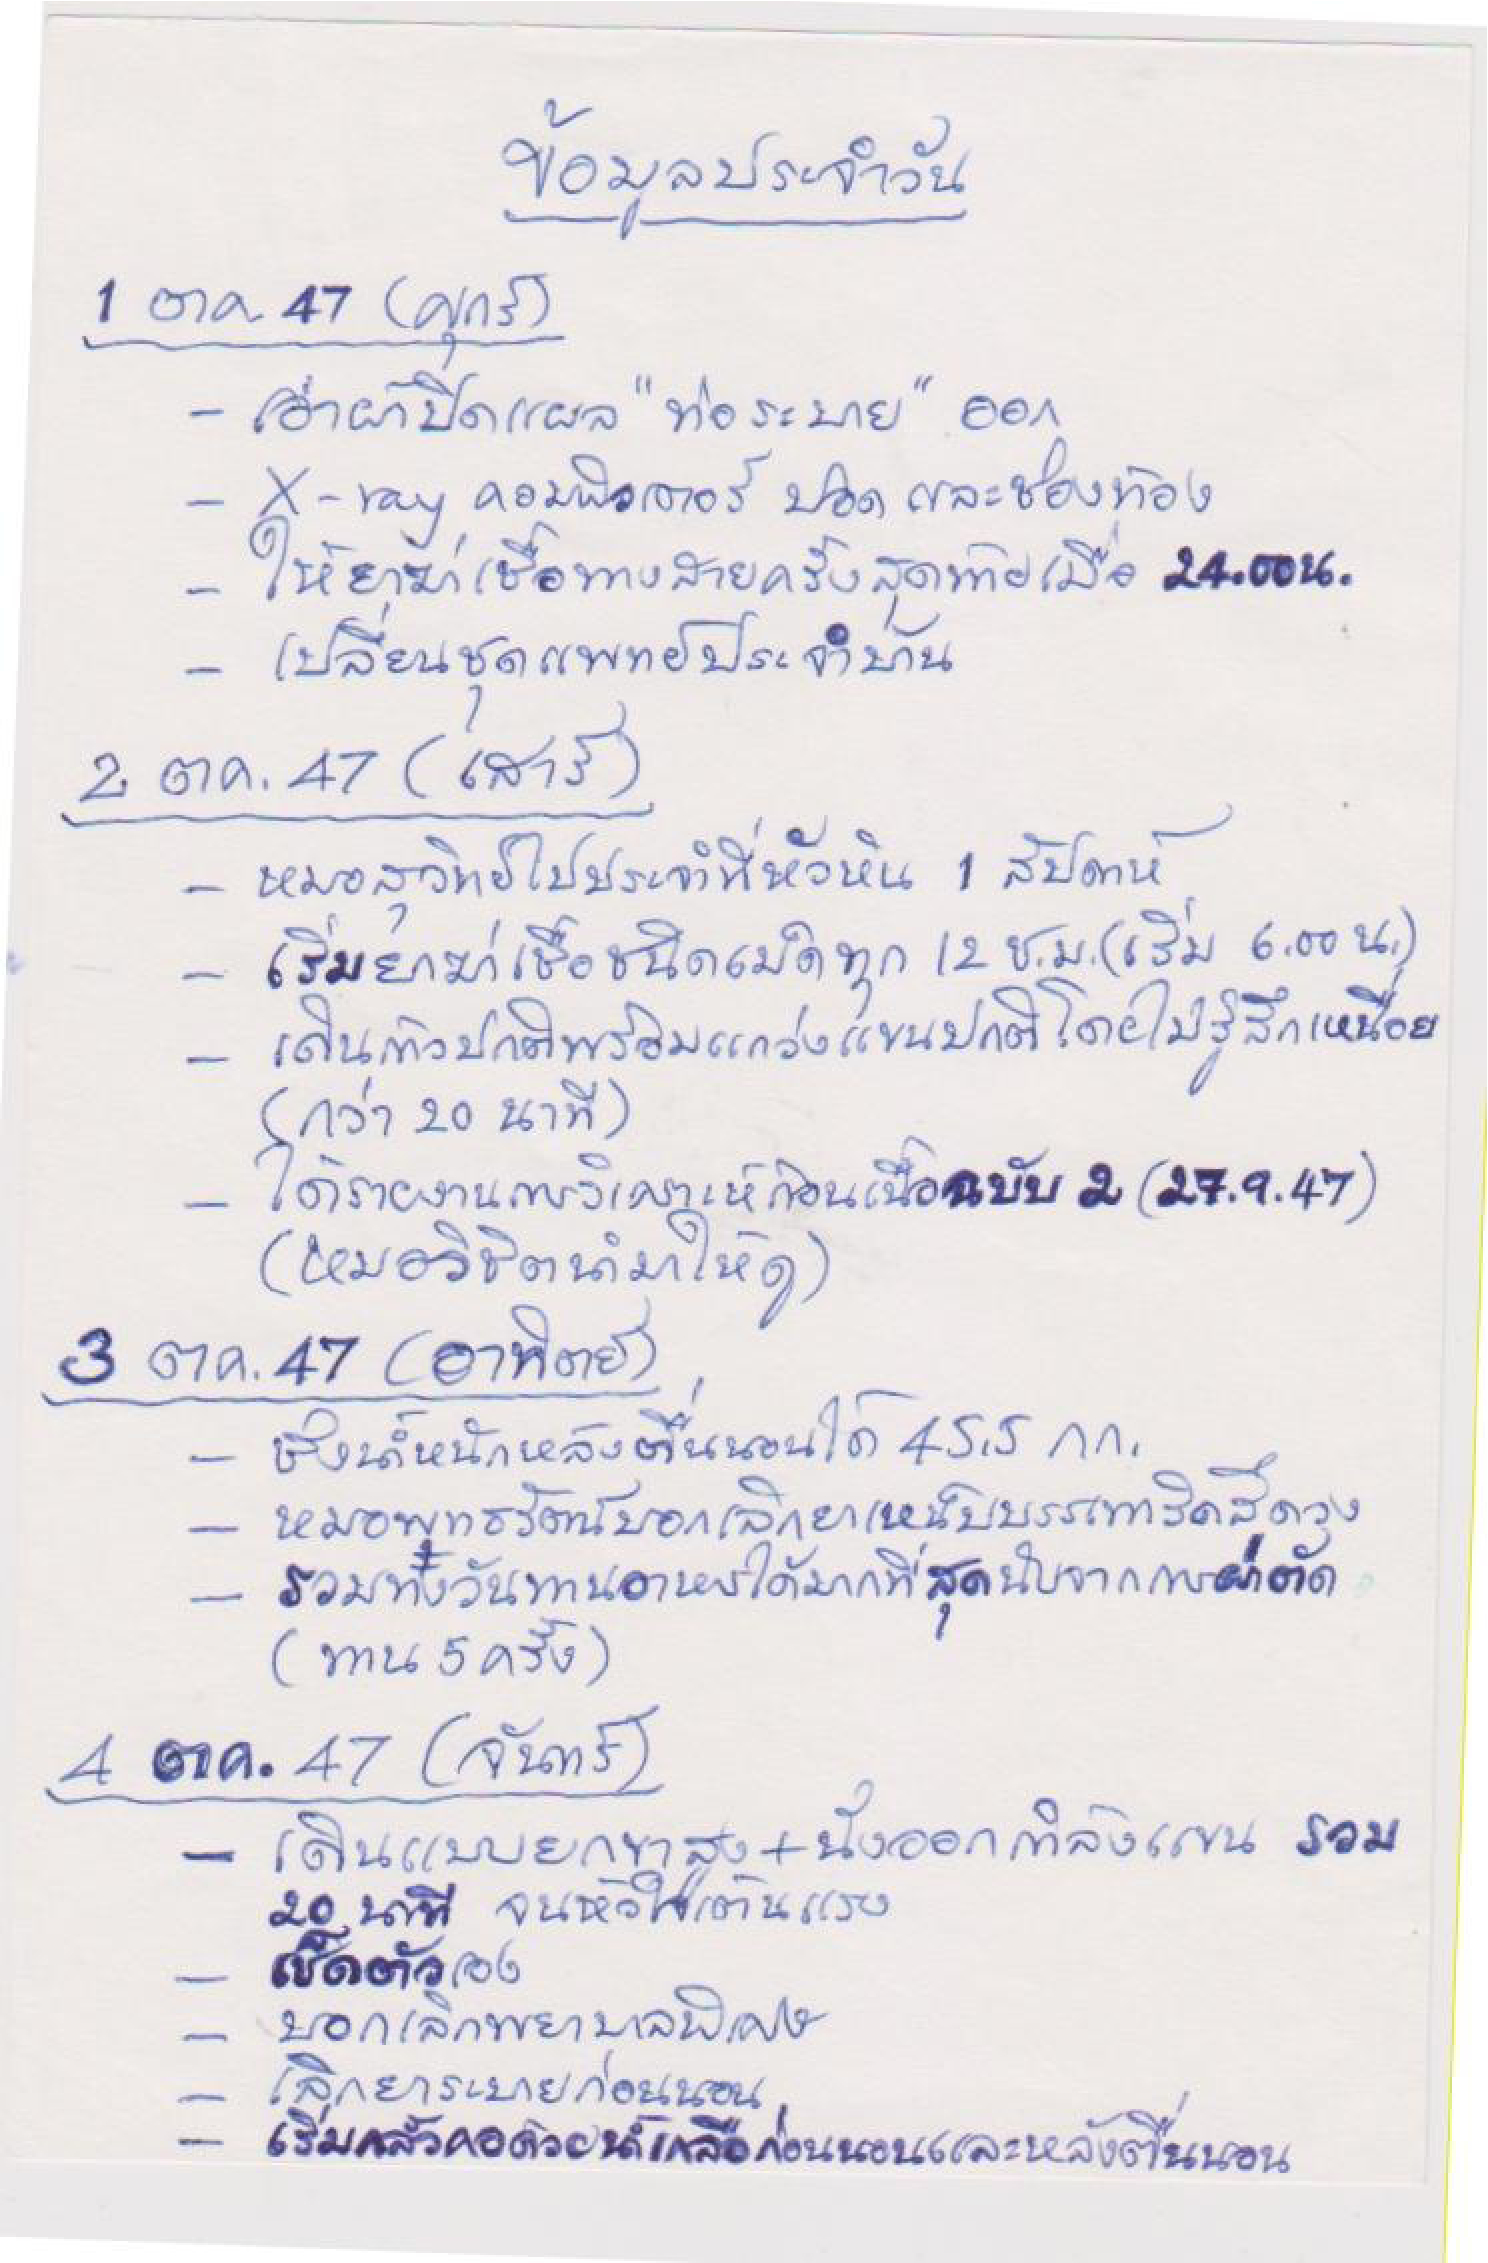 ข้อมูลประจำวัน
1 ตค. 47 (ศุกร์)
- เอาผ้าปิดแผล "ท่อระบาย" ออก
- X-ray คอมพิวเตอร์ ปอด และช่องท้อง
- ให้ยาฆ่าเชื้อทางสายครั้งสุดท้ายเมื่อ 24.00น.
- เปลี่ยนชุดแพทย์ประจำบ้าน
2 ตค. 47 (เสาร์)
- หมอสุวิทย์ไปประจำที่หัวหิน 1 สัปดาห์
- เริ่มยาฆ่าเชื้อชนิดเม็ดทุก 12 ช.ม.(เริ่ม 6.00 น.)
- เดินท่าปกติพร้อมแกว่งแขนปกติโดยไม่รู้สึกเหนื่อย
(กว่า 20 นาที)
- ได้รายงานการวิเคราะห์ก้อนเนื้อฉบับ 2 (27.9.47)
(หมอวิชิตนำมาให้ดู)
3 ตค. 47 (อาทิตย์)
- ชั่งน้ำหนักหลังตื่นนอนได้ 45.5 กก.
- หมอพุทธรัตน์บอกเลิกยาเหน็บบรรเทาริดสีดวง
- รวมทั้งวันทานอาหารได้มากที่สุดนับจากการผ่าตัด
(ทาน 5 ครั้ง)
4 ตค. 47 (จันทร์)
- เดินแบบยกขาสูง + นั่งออกกำลังแขน รวม
20 นาที จนหัวใจเต้นแรง
- เช็ดตัวเอง
- บอกเลิกพยาบาลพิเศษ
- เลิกยาระบายก่อนนอน
- เริ่มกลั้วคอด้วยน้ำเกลือก่อนนอนและหลังตื่นนอน